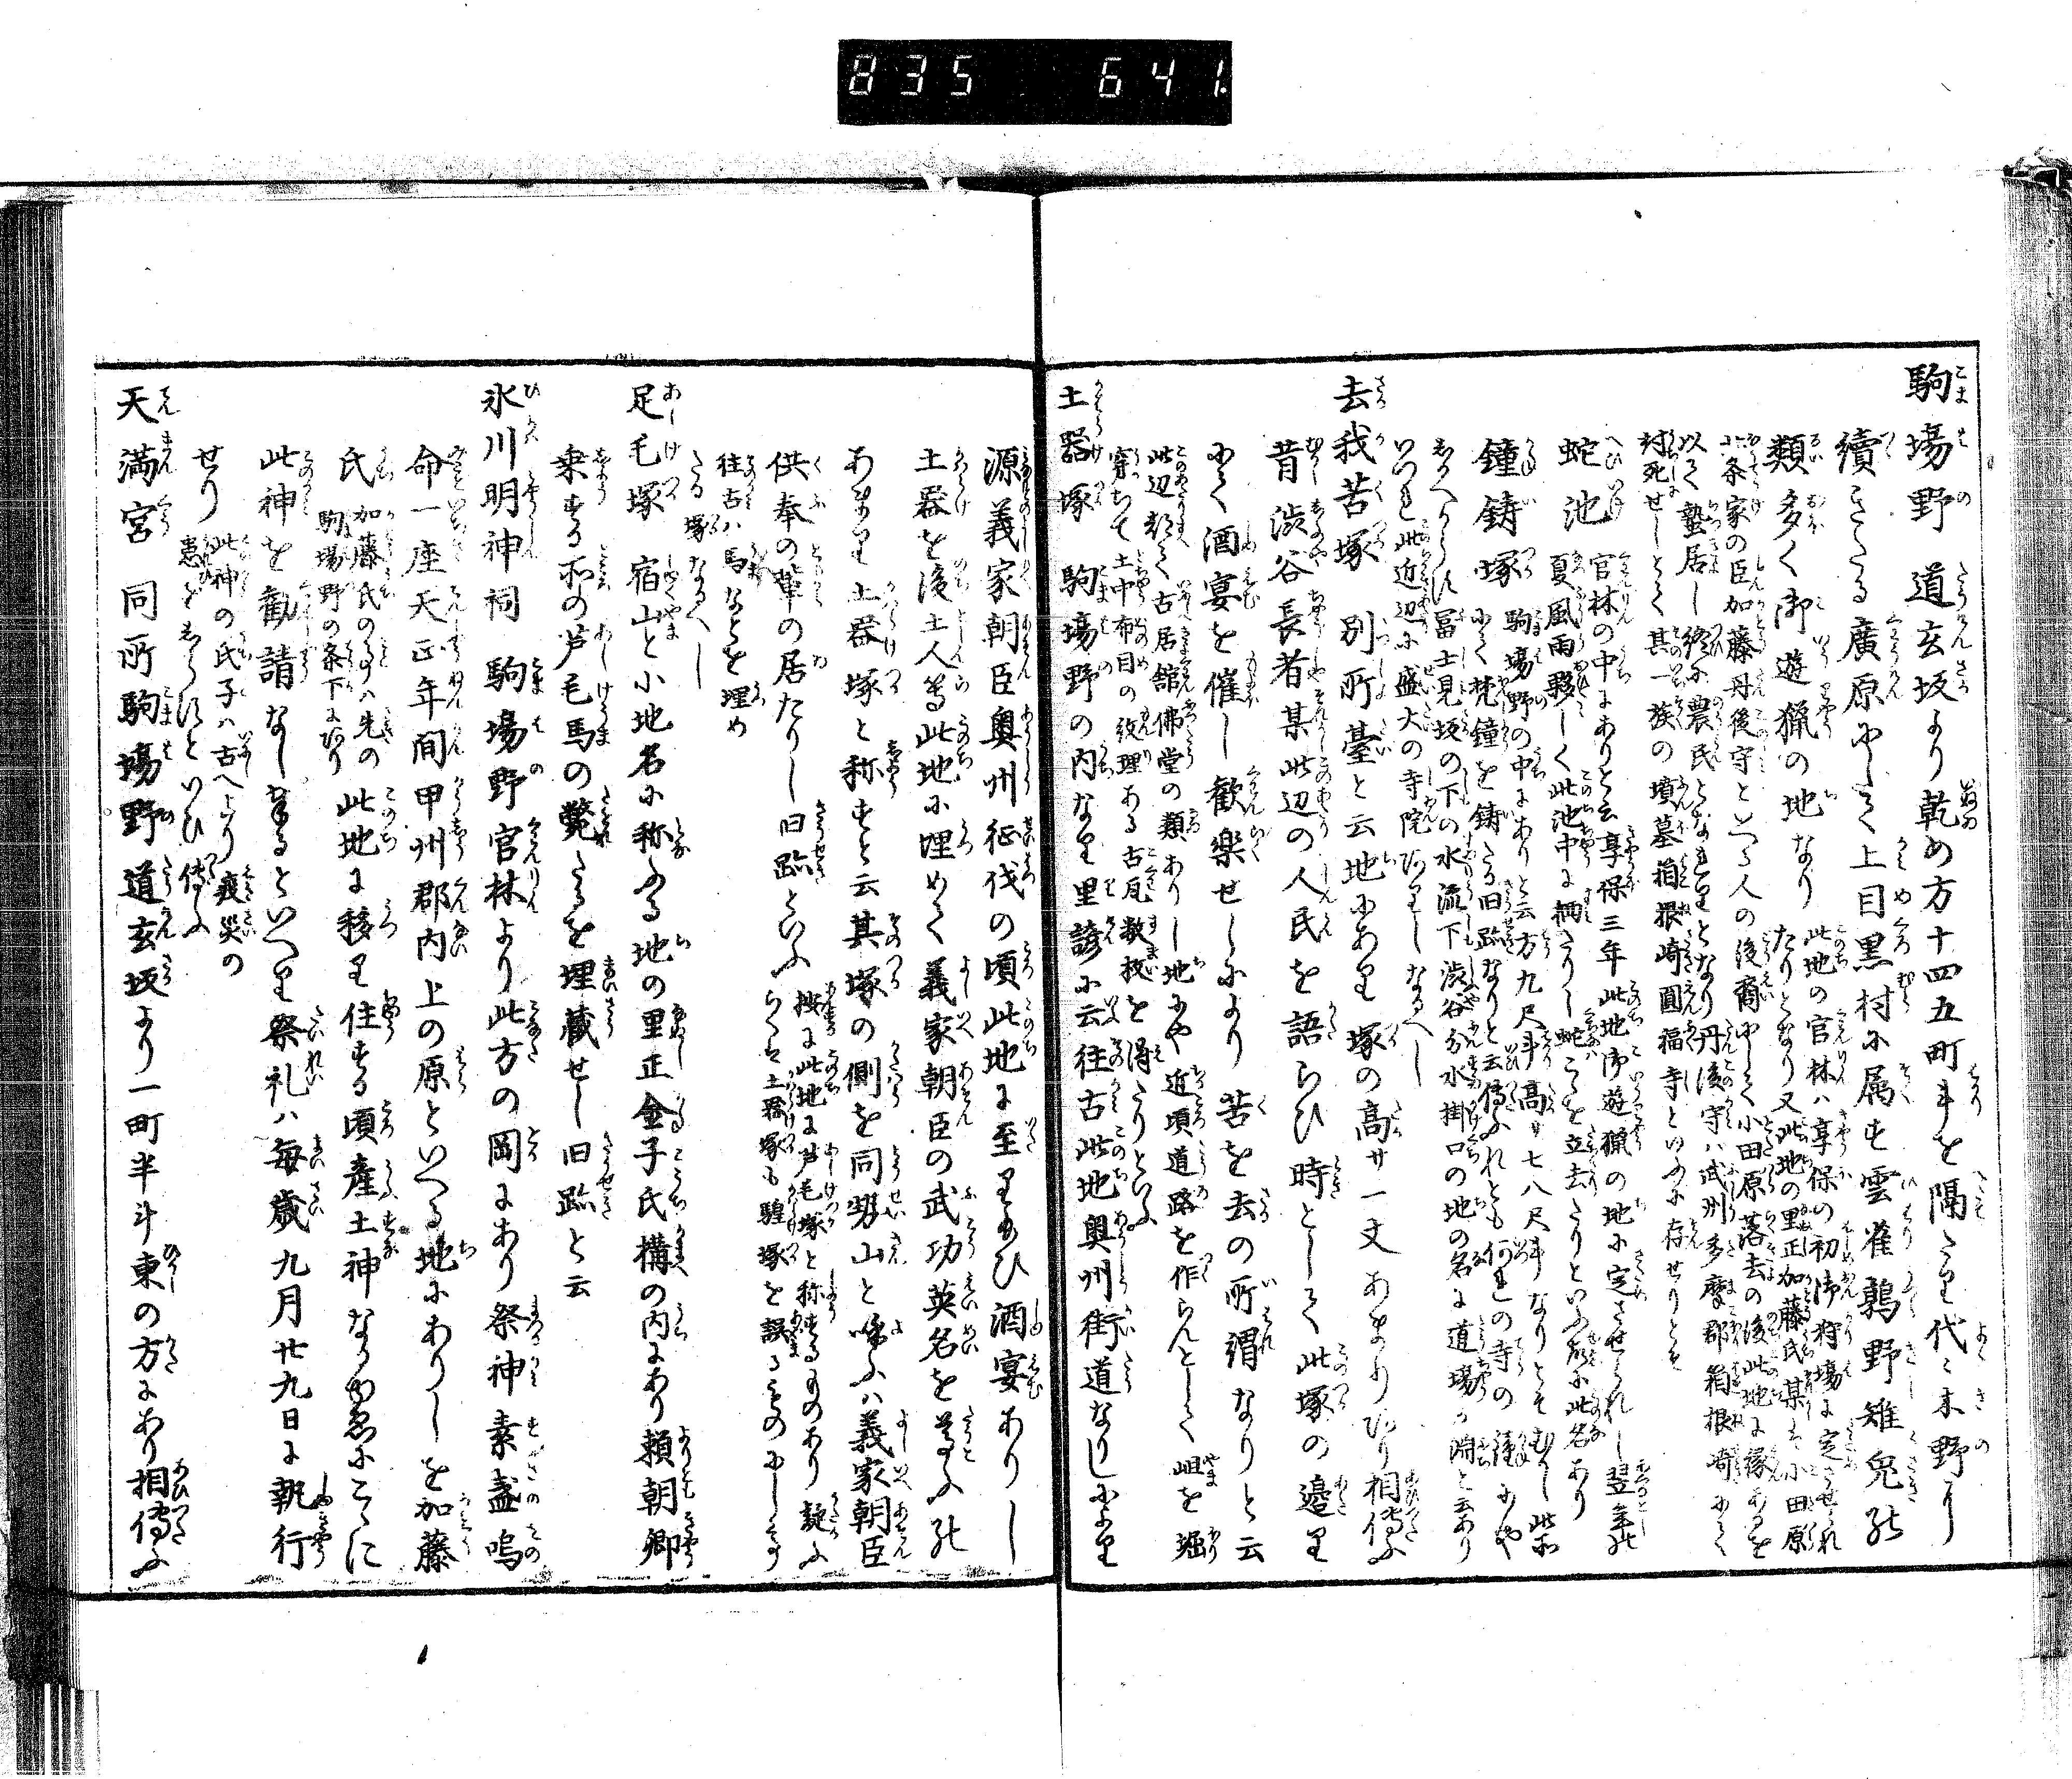 835 641.
駒場野 道玄坂より乾の方十四五町半を隔たり代々木野より
續きたる廣原にして上目黒村に属す雲雀鶉野雉兎の
類多く御遊猟の地なり
此地の官林ハ享保の初御狩場に定させられ
たりとなり又此地の里正加藤氏某ハ小田原
北条家の臣加藤丹後守といへる人の後裔にして小田原落去の後此地に縁あるを
以て蟄居し終に農民となれりとなり丹後守ハ武州多摩郡箱根崎にて
討死せしとて其一族の墳墓箱根崎圓福寺といふに存せりとそ
蛇池
官林の中にありと云享保三年此地御遊猟の地に定させられし翌年の
夏風雨夥しく此池中に栖たりし蛇こゝを立去たりといふ故に此名あり
鐘鋳塚
駒場野の中にありと云方九尺斗高サ七八尺斗なりとそむかし此所
にて梵鐘を鋳たる旧跡なりと云傳ふれとも何れの寺の鐘にや
しるへからす冨士見坂の下の水流下渋谷分水掛口の地の名に道場か淵と云あり
いつれ此近辺に盛大の寺院ありしなるへし
去我苦塚 別所臺と云地にあり塚の高サ一丈あまりあり相傳ふ
昔渋谷長者某此辺の人民を語らひ時として此塚の邉り
にて酒宴を催し歓楽せしにより苦を去の所謂なりと云
此辺都て古居舘佛堂の類ありし地にや近頃道路を作らんとして岨を堀
穿ちて土中布目の紋理ある古瓦数枚を得たりといふ
土器塚 駒場野の内なり里諺に云往古此地奥州街道なりしにより
源義家朝臣奥州征伐の頃此地に至り給ひ酒宴ありし
土器を後土人等此地に埋めて義家朝臣の武功英名を尊ふの
あまり土器塚と称すと云其塚の側を同勢山と唱ふハ義家朝臣
供奉の輩の居たりし旧跡といふ
按に此地に芦毛塚と称するものあり疑ふ
らくは土器塚も騜塚を誤るものにして
往古ハ馬なとを埋め
たる塚なるへし
足毛塚 宿山と小地名に称ふる地の里正金子氏構の内にあり頼朝卿
乗する所の芦毛馬の斃たるを埋蔵せし旧跡と云
氷川明神祠 駒場野官林より此方の岡にあり祭神素盞嗚
命一座天正年間甲州郡内上の原といへる地にありしを加藤
氏
加藤氏の事ハ先の
駒場野の条下にあり
此地に移り住する頃産土神なるゆゑにこゝに
此神を勧請なし奉るといへり祭礼ハ毎歳九月廿九日に執行
せり
此神の氏子ハ古へより疫災の
患をしらすといひ傳ふ
天満宮 同所駒場野道玄坂より一町半斗東の方にあり相傳ふ